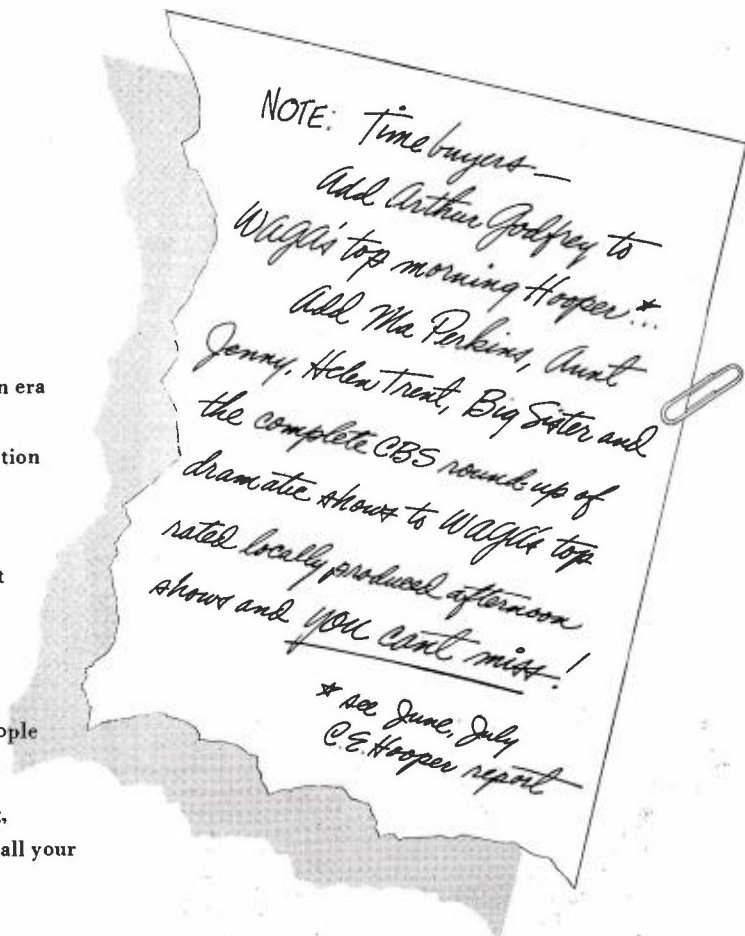 NOTE: Timebuyers—
Add Arthur Godfrey to
WAGA's top morning Hooper*...
Add Ma Perkins, Aunt
Jenny, Helen Trent, Big Sister and
the complete CBS round-up of
dramatic shows to WAGA's top
rated locally produced afternoon
shows and you can't miss!
* see June, July
C.E. Hooper report
n era
tion
t
ople
,
all your